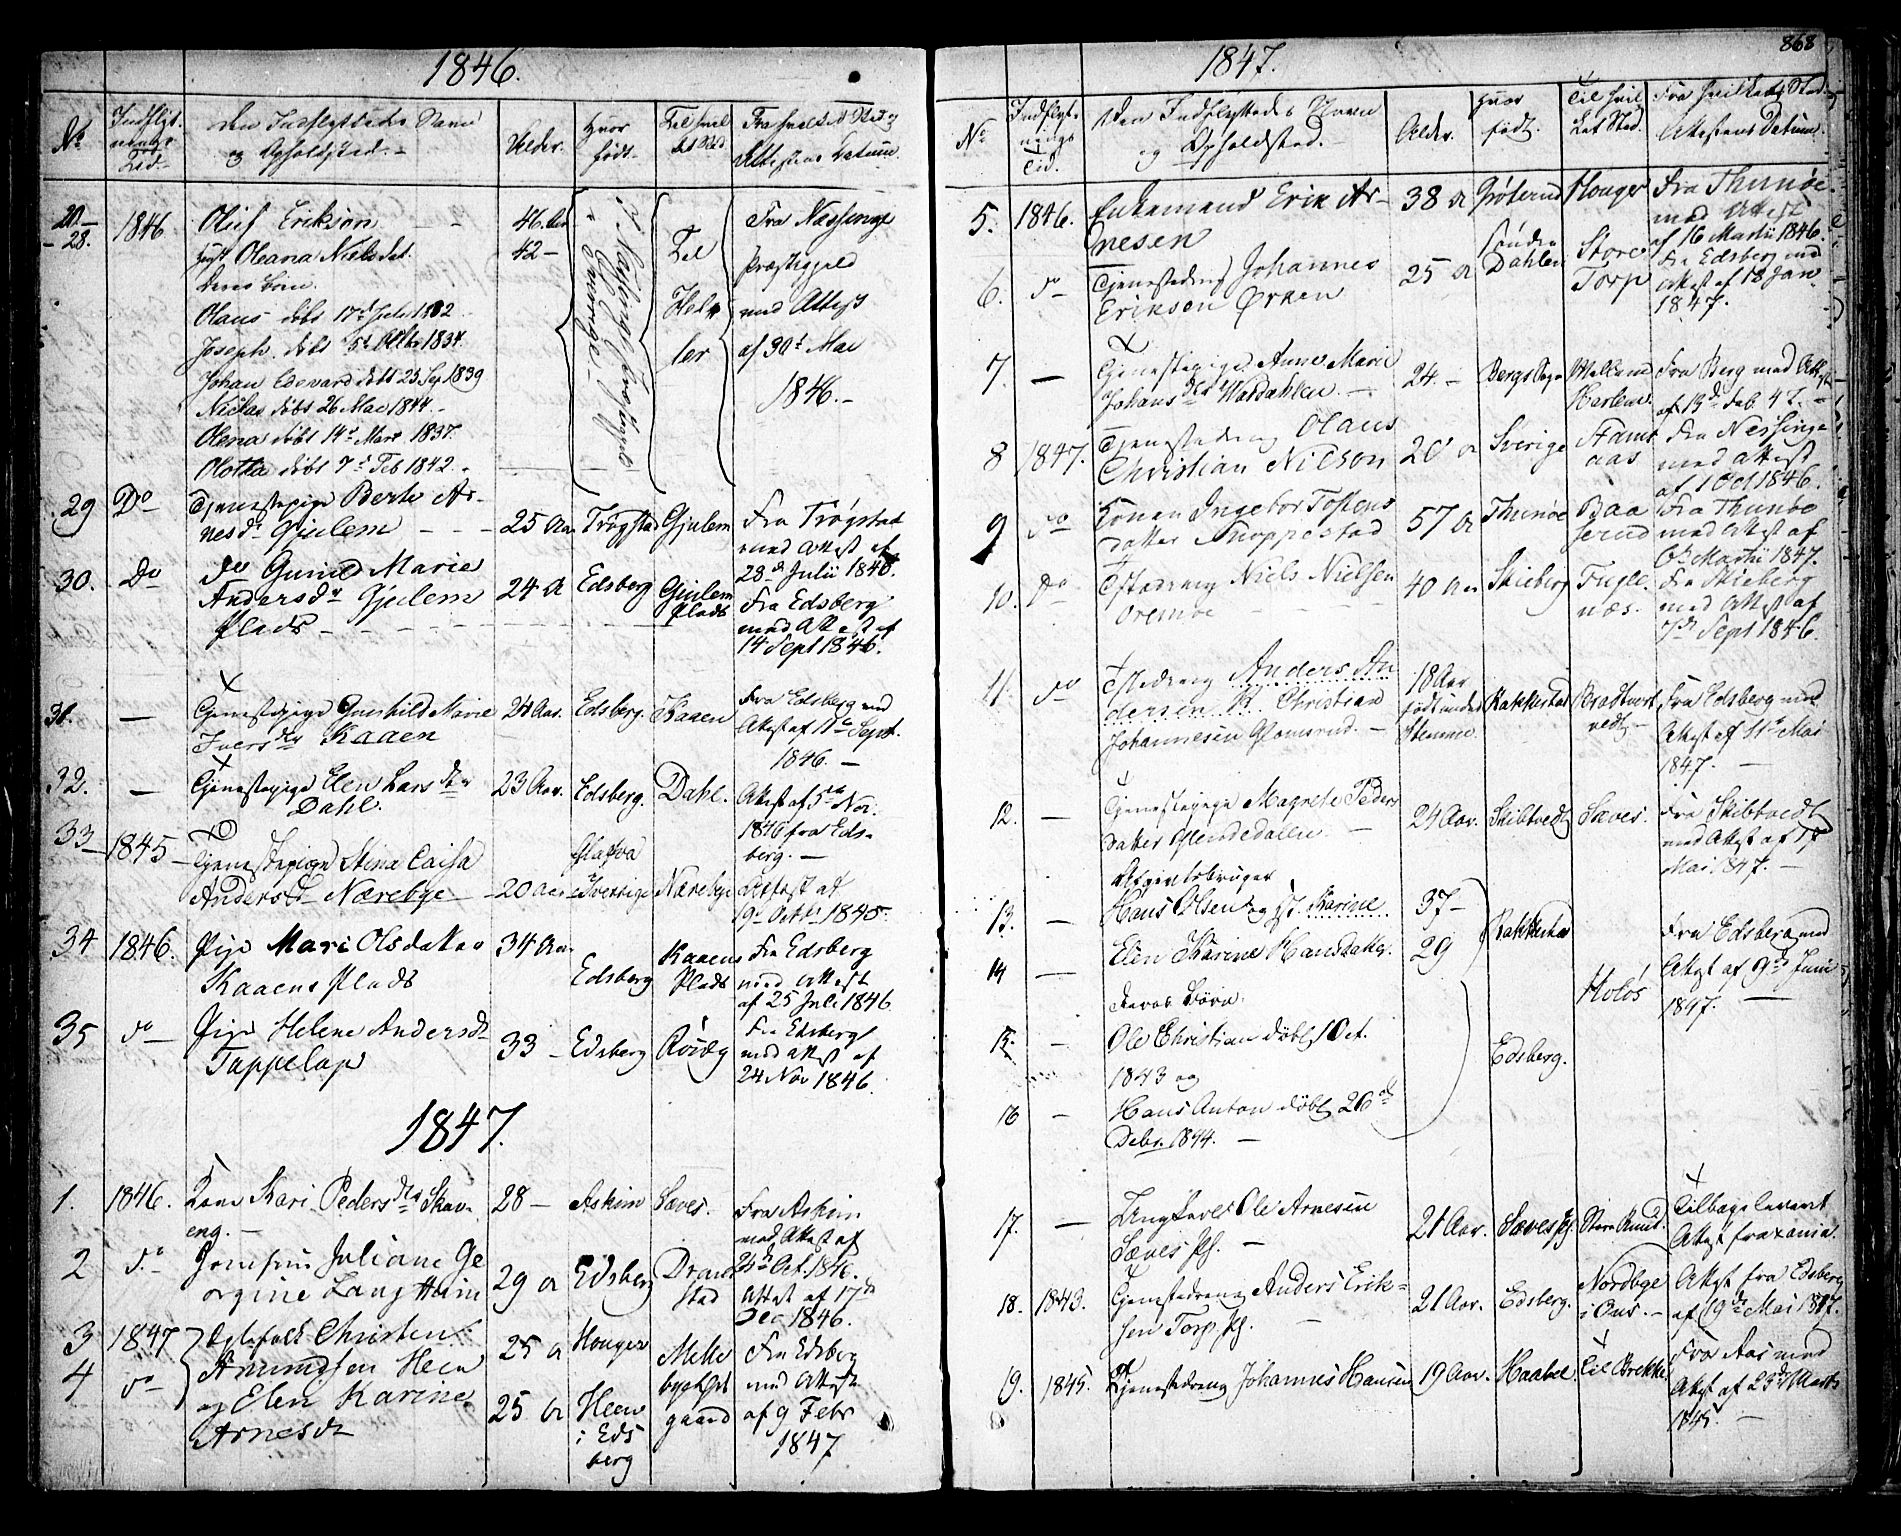 1846.
No
Indflyt-
nings
Tid
Den Indflyttedes Navn
og Opholdsted.
Alder.
Hvor
født.
Til hvil
ket Sted
Fra hvilket Sted og
Attestens Datum.
20 -
- 28.
1846
Oluf Erikson
hust. Oleana Nielsdat.
deres børn.
Olaus døbt 17d Juli
Joseph døbt 5t Octbr 1834.
Johan Edevard døbt 23 Sep 1839
Niclas døbt 26 Mai 1844.
Olena døbt 14d Mart 1837.
Olotta døbt 7d Feb 1842.
46 Aar
42 -
Til
ler
Fra Næssinge
Præstegjeld
med Attest
af 30t Mai
1846.-
29
Do
Tjenestepige Berte Ar-
nesd. Gjulem
25 Aar
Trøgstad
Gjulem
Fra Trøgstad
med Attest af
28d Julii 1846.
30.
Do
do Gunild Marie
Andersdr Gjulem
Plads
24 A
Edsberg
Gjulem
Plads
Fra Edsberg
med Attest af
14 Sept 1846.
31.
-
Tjenestepige Gunhild Marie
Iversdtr Kaaen
24 Aar.
Edsberg.
Kaaen
Fra Edsberg med
Attest af 11te Sept.
1846. -
32.
-
Tjenestepige Elen Larsdtr
Dahl.
23 Aar.
Edsberg.
Dahl.
Attest af 5te Nov.
1846 fra Eds-
berg. -
33
1845
Tjenestepige Stina Caisa
Andersd Nærebye
20 Aar
Glafva
i Sverrige
Nærebye
Attest af
19 Octbr 1845.
34
1846.
Pige Mari Olsdatter
Kaaens Plads
34 Aar
Edsberg
Kaaens
Plads
Fra Edsberg
med Attest
af 25 Juli 1846
35
do
Pige Helene Andersdr
Tappelap
33 -
Edsberg
Fra Edsberg
med attest af
24 Nov 1846
1847.
1.
1846.
Kone Kari Pedersdtr Skav-
eng. -
28 -
Askim
Sæves.
Fra Askim
med Attest af
24d Oct. 1846.
2
do
Jomfru Juliane Ge
orgine Langtheim
29 A
Edsberg
Dram
stad
Attest af 17de
Dec 1846.
3
4
1847
do
Ægtefolk Christen
Amundsen Heen
og Elen Karine
Arnesdr
25 A
25 A
Houger
Heen
i Eds
berg
Melle
gaard
Fra Edsberg
med Attest
af 9 Febr
1847
1847.
868
No
Indflyt-
nings
Tid.
Den Indflyttedes Navn
og Opholdsted.
Alder.
Hvor
født.
Til hvil
ket Sted.
Fra hvilket Sted
Attestens Datum.
5.
1846.
Enkemand Erik Ar-
nesen
38 A
Grøterud
Houger
Fra Thunøe
med Attest
af 16 Martii 1846.
6.
do
Tjenestedreng Johannes
Eriksen Ørken
25 A
Søndre
Dahlen
Store
Torp
Fra Edsberg med
Attest af 18 Jan
1847.
7.
-
Tjenestepige Anne Marie
Johansdtr Wardahlen
24. -
Bergs Sogn
Mellem
Harlem.
Fra Berg med Attest
af 13de Feb 47. -
8
1847.
Tjenestedreng Olaus
Christian Nilson
20 A
Sverige
Stams
aas
Fra Nessinge
med attest
af 1 Oct 1846.
9
do
Konen Ingebor Tostens
datter Snoppestad
57 Ar
Thunøe
Baa
serud
Fra Thunøe
med Attest af
6te Martii 1847.
10.
Do
Tjstedreng Niels Nielsen
Oremoe
40 Aar
Skieberg
Fugle
næs.
Fra Skieberg
med Attest af
7de Sept 1846.
11.
do
Tjstedreng Anders An
dersen Christian
Johannesen Glomsrud. -
18 Aar
Rakkestad
Bradtvert
vedt. -
Fra Edsberg med
Attest af 11te Mai
1847. -
12.
-
Tjenestepige Magrete Peders
datter Glendedalen. -
24 Aar.
Skibtvedt
Sæves.
Fra Skibtvedt
med Attest af 17
Mai 1847. -
13.
-
Afgivtsbruger
Hans Olsen og hst. Karine
37 -
Rakkestad
Fra Edsberg med
Attest af 9de Juni
1847. -
14
-
Elen Karine Hansdatter.
29
deres Børn.
Holøs
15.
-
Ole Christian døbt 1 Oct.
1843 og
Edsberg.
16
-
Hans Anton døbt 26de
Debr. 1844. -
17.
-
Ungkarl Ole Arnesen
Sæves Pl. -
21 Aar.
Sæves Pl.
Store Rud.
Tilbageleveret
Attest fra Xania.
18.
1843.
Tjenestedreng Anders Erik-
sen Torp Pl. -
21 Aar.
Edsberg.
Nordbye
i Ous. -
Attest fra Edsberg
af 19de Mai 1847.
19.
1845.
Tjenestedreng Johannes Hansen
19 Aar.
Haabel.
Til Brekke
Fra Aas med
Attest af 23de Marts
1845. -